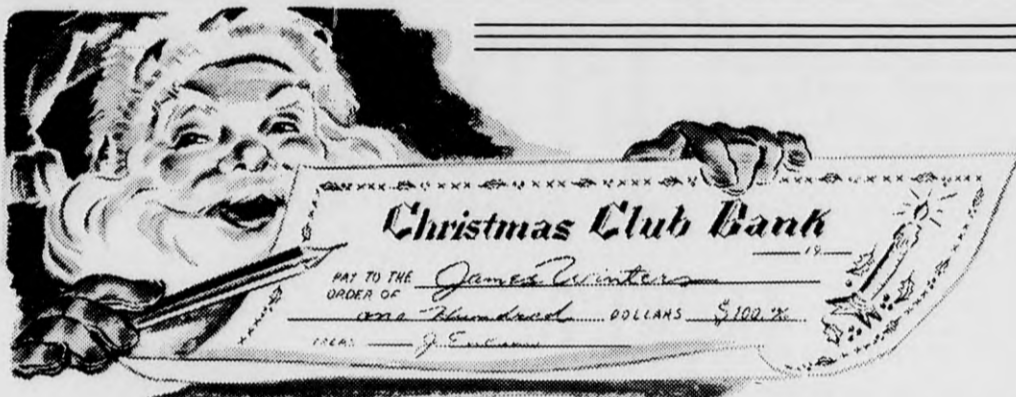 Christmas Club Bank
19
PAY TO THE ORDER OF James Winters
one Hundred DOLLARS $100.
TREAS.